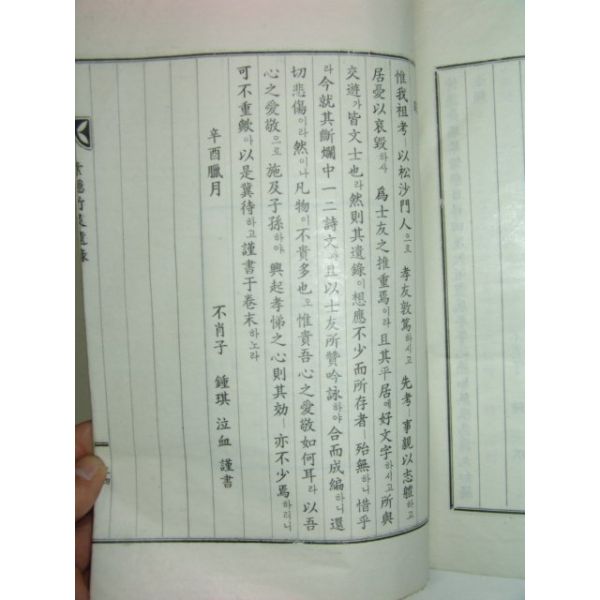 惟我祖考 以松沙門人으로 孝友敦篤하시고 先考ㅣ事親以志體하고
居憂以哀毁하사 爲士友之推重焉이라 且其平居에好文字하시고 所與
交遊가皆文士也라然則其遺錄이想應不少而所存者ㅣ殆無하니 惜乎
라今就其斷爛中一二詩文 且以士友所贊吟詠하야 合而成編하니 還
切悲傷이라然이나凡物이不貴多也오 惟貴吾心之愛敬如何耳라 以吾
心之愛敬으로 施及子孫하야 興起孝悌之心則其効ㅣ亦不少焉하리니
可不重歟아以是冀待하고謹書于卷末하노라
辛酉臘月 不肖子 鍾琪 泣血 謹書